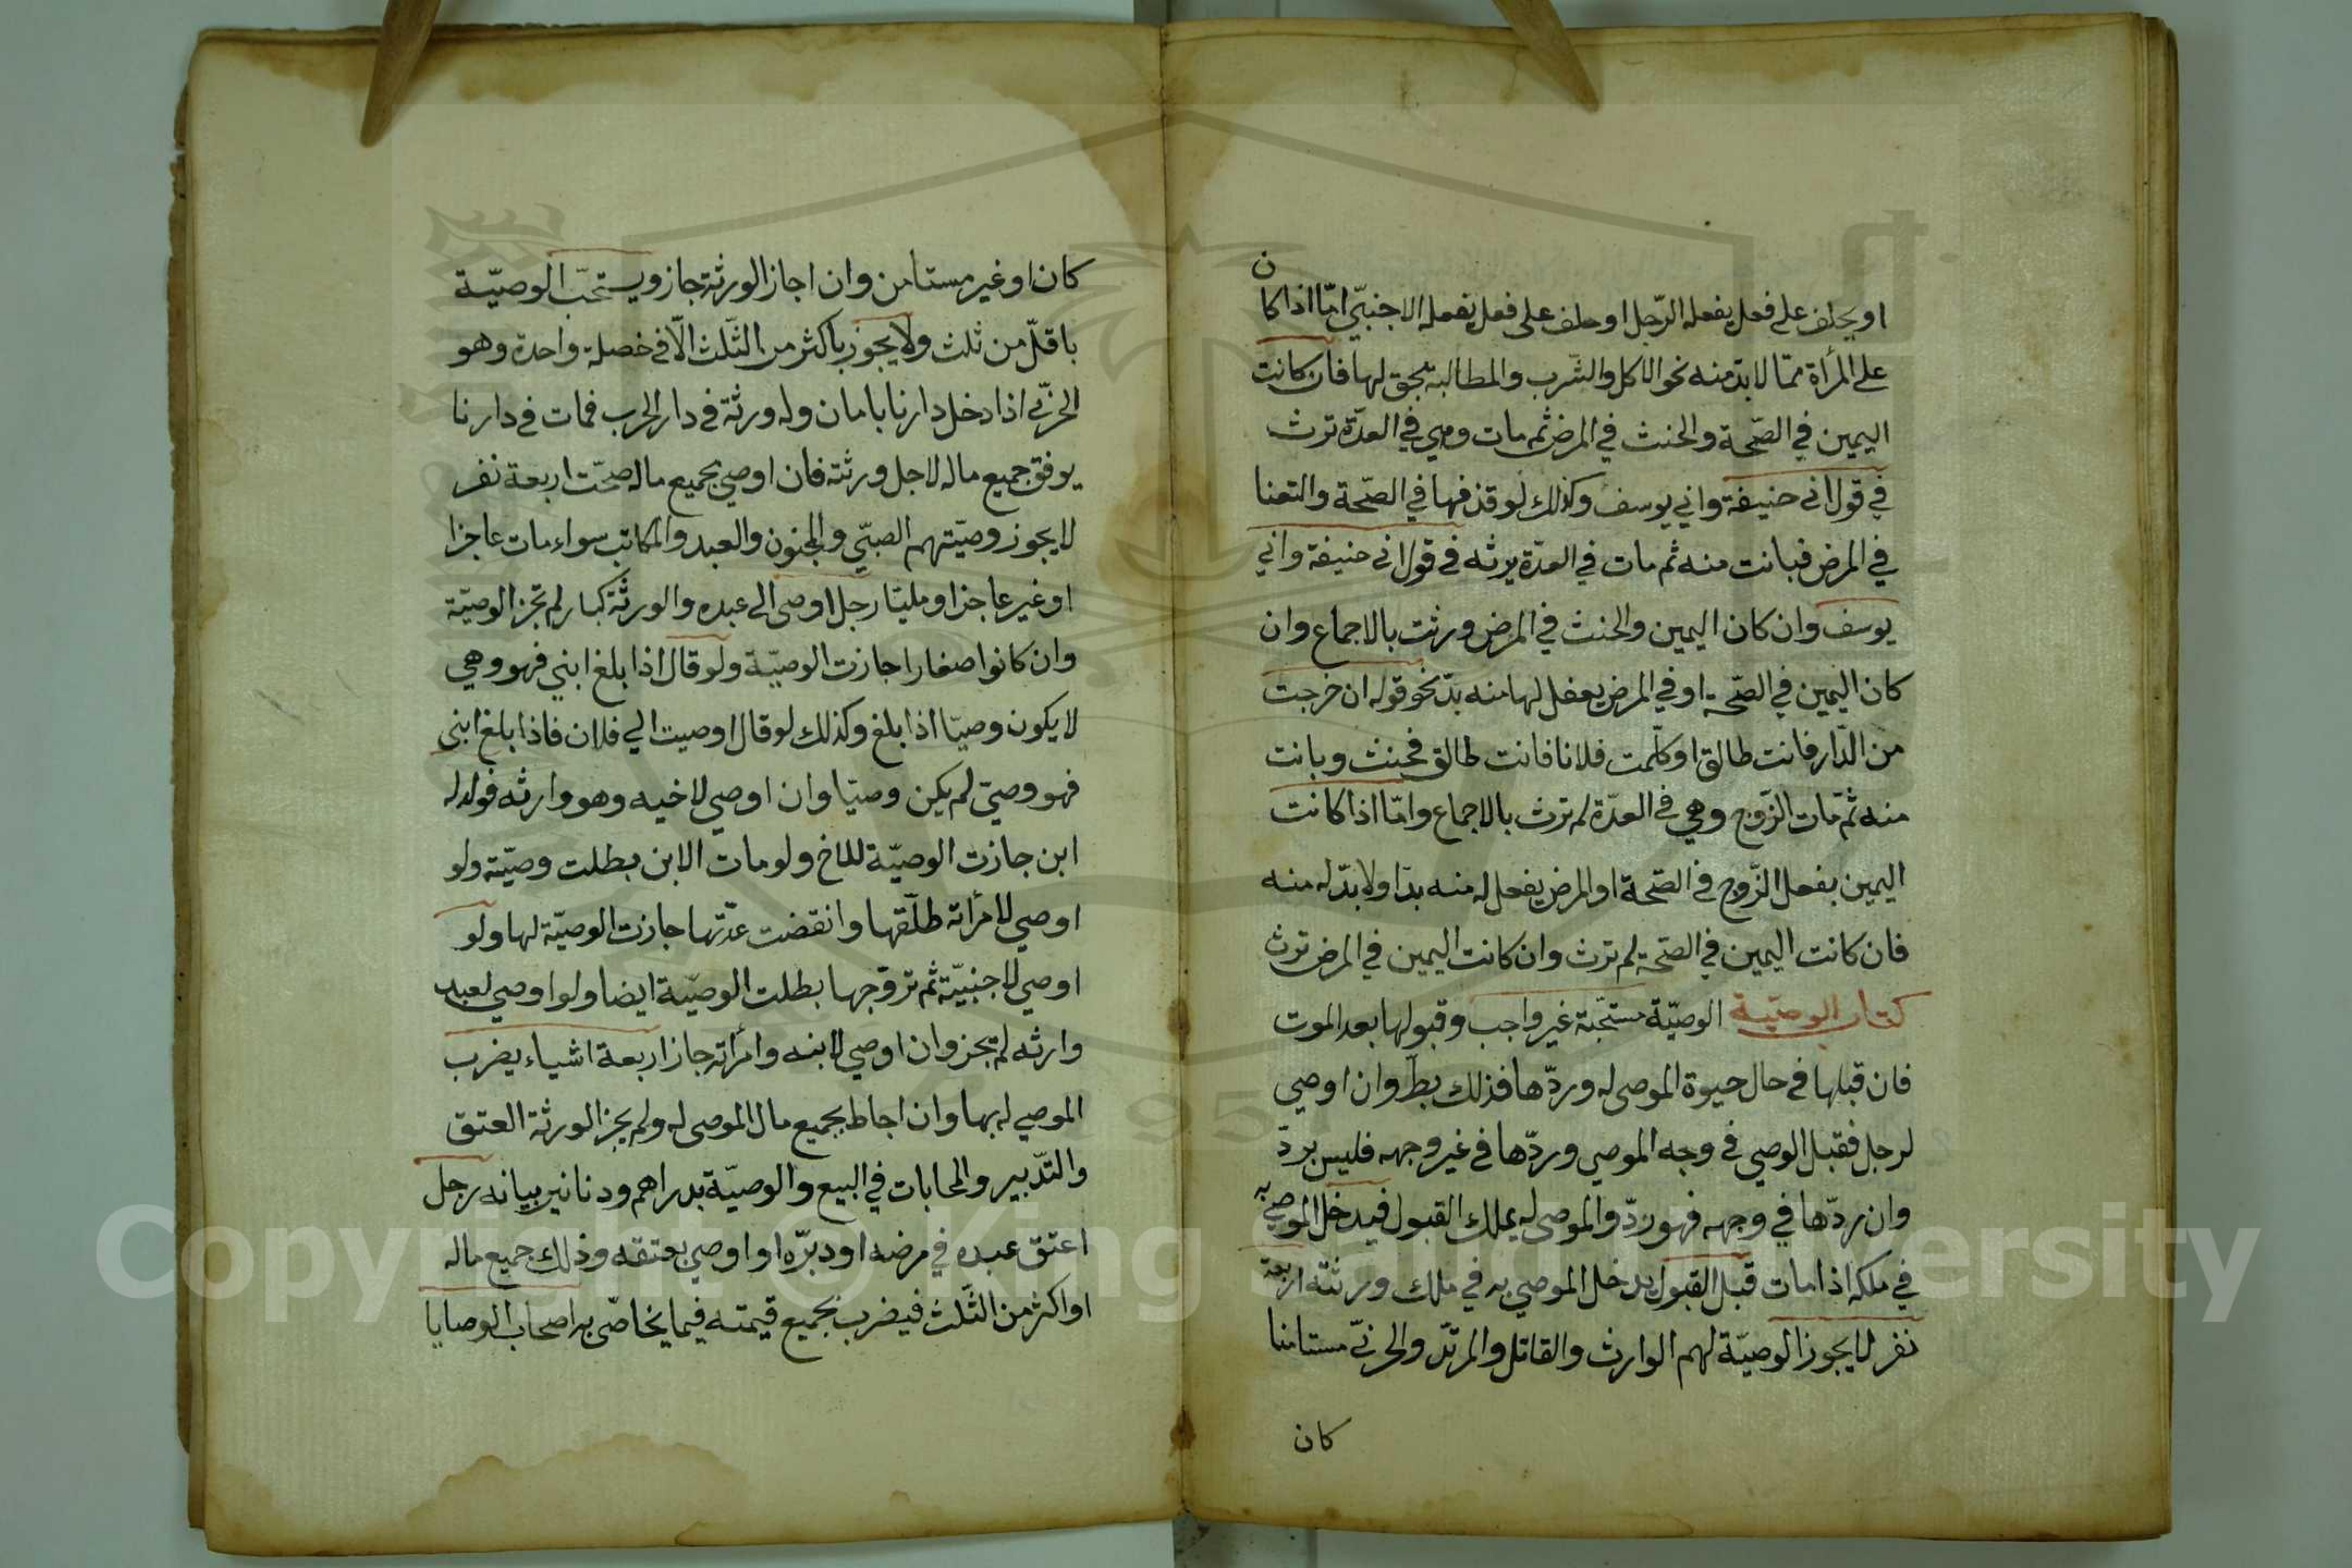 او يحلف على فعل يفعله الرّجل او حلف على فعل يفعله الاجنبيّ امّا اذا كان
على المرأة ممّا لا بدّ منه نحو الاكل والشّرب والمطالبة بحق لها فان كانت
اليمين في الصّحة والحنث في المرض ثم مات وهي في العدّة ترث
في قول ابى حنيفة وابي يوسف وكذلك لو قذفها في الصّحة والتعنا
في المرض فبانت منه ثم مات في العدّة يرثه في قول ابى حنيفة وابي
يوسف وان كان اليمين والحنث في المرض ورثت بالاجماع وان
كان اليمين في الصّحة او في المرض بفعل لها منه بدّ نحو قوله ان خرجت
من الدّار فانت طالق او كلّمت فلانا فانت طالق فحنث وبانت
منه ثم مات الزّوج وهي في العدّة لم ترث بالاجماع وامّا اذا كانت
اليمين بفعل الزّوج في الصّحة او المرض بفعل له منه بدّ اولا بدّ له منه
فان كانت اليمين في الصّحة لم ترث وان كانت اليمين في المرض ترث
كتاب الوصيّة الوصيّة مستحبّة غير واجب وقبولها بعد الموت
فان قبلها في حال حيوة الموصى له وردّها فذلك بطل وان اوصي
لرجل فقبل الوصي في وجه الموصي وردّها في غير وجهه فليس بردّ
وان ردّها في وجهه فهو ردّ والموصى له يملك القبول فيدخل الموصي به
في ملكه اذا مات قبل القبول يدخل الموصي به في ملك ورثته اربعة
نفر لا يجوز الوصيّة لهم الوارث والقاتل والمرتدّ والحربيّ مستامنا
كان
كان او غير مستامن وان اجاز الورثة جاز ويستحبّ الوصيّة
باقلّ من ثلث ولا يجوز باكثر من الثّلث الّا في خصلة واحدة وهو
الحربّي اذا دخل دارنا بامان وله ورثة في دار الحرب فمات في دارنا
يوفق جميع ماله لاجل ورثته فان اوصي بجميع ماله صحّت اربعة نفر
لا يجوز وصيّتهم الصبّي والمجنون والعبد والمكاتب سواء مات عاجزا
او غير عاجز او مليّا رجل اوصى الى عبده والورثة كبار لم تجز الوصيّة
وان كانوا صغارا جازت الوصيّة ولو قال اذا بلغ ابني فهو وصي
لا يكون وصيّا اذا بلغ وكذلك لو قال اوصيت الي فلان فاذا بلغ ابنى
فهو وصيّ لم يكن وصيّا وان اوصي لاخيه وهو وارثه فولد له
ابن جازت الوصيّة للاخ ولو مات الابن بطلت وصيّته ولو
اوصي لامرأته طلّقها وانقضت عدّتها جازت الوصيّة لها ولو
اوصي لاجنبيّة ثم تزوجها بطلت الوصيّة ايضا ولو اوصي لعبد
وارثه لم تجز وان اوصي لابنه وامرأته جاز اربعة اشياء يضرب
الموصي له بها وان احاط بجميع مال الموصى له ولم يجز الورثة العتق
والتّدبير والمحابات في البيع والوصيّة بدراهم ودنانير بيانه رجل
اعتق عبده في مرضه او دبرّه او اوصي بعتقه وذلك جميع ماله
او اكثر من الثّلث فيضرب بجميع قيمته فيما يخاصّ به اصحاب الوصايا
Copyright © King Saud University